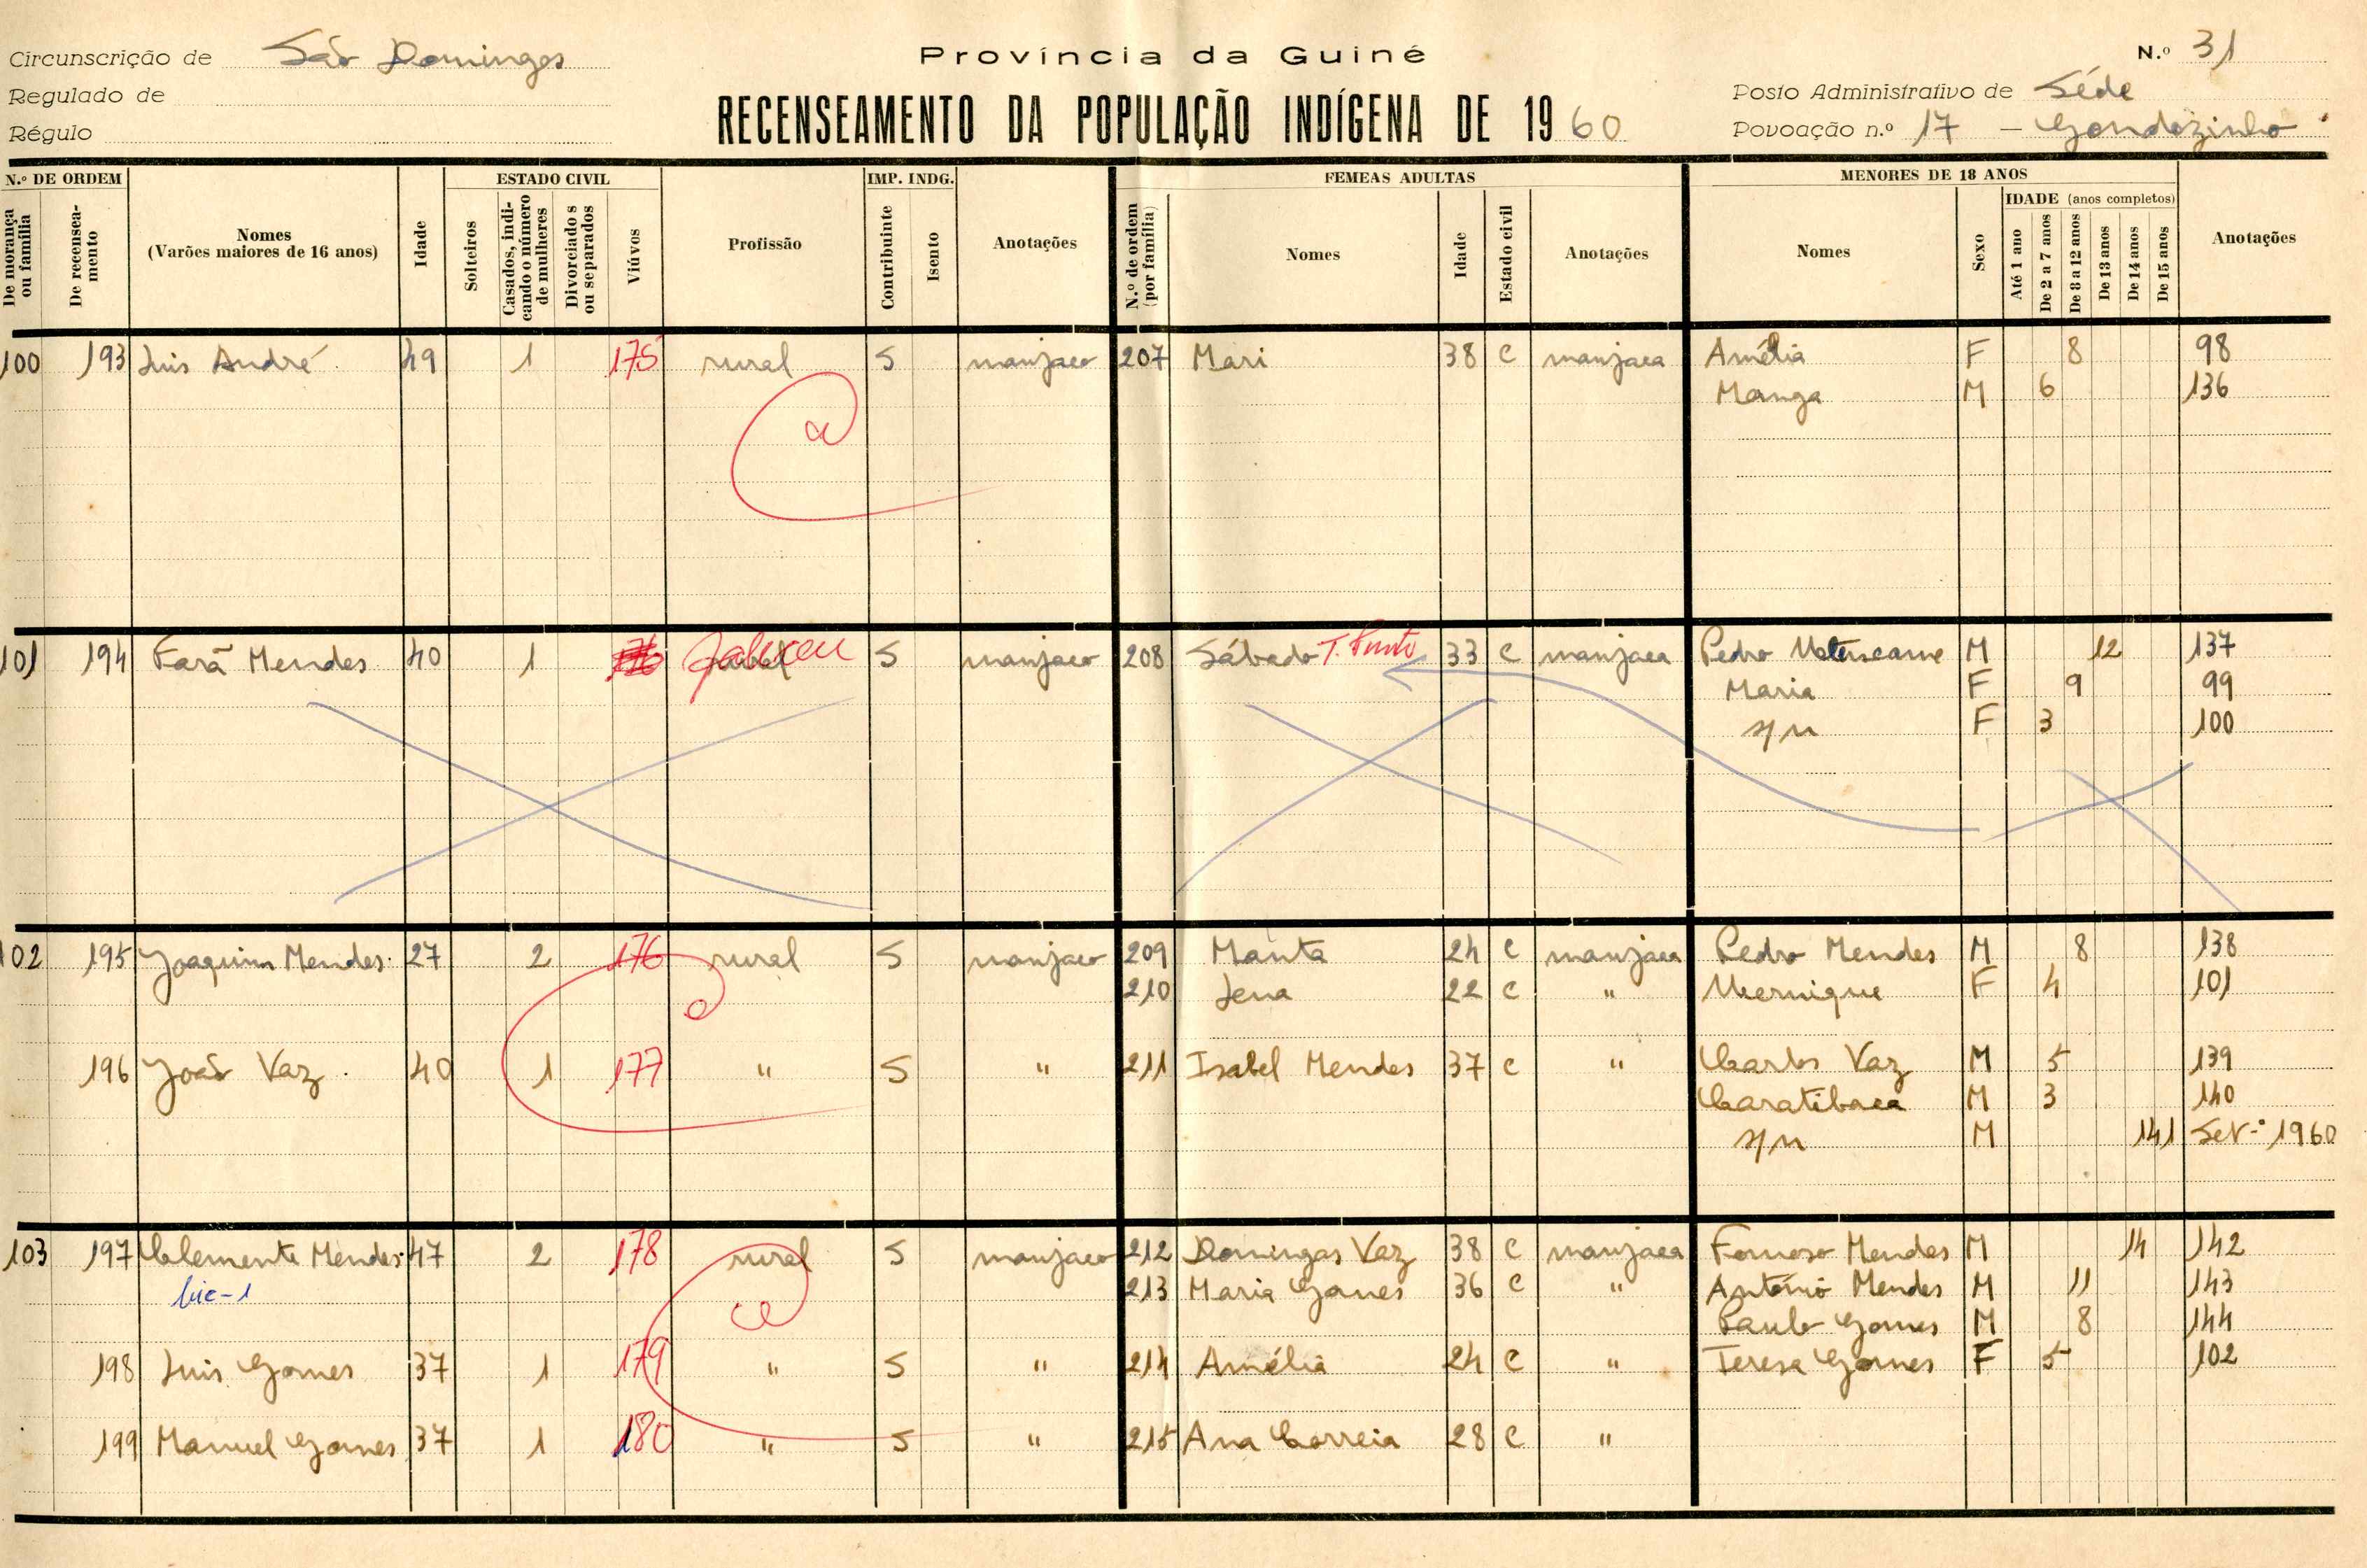 Circunscrição de São Domingos
Regulado de
Régulo
Província da Guiné
RECENSEAMENTO DA POPULAÇÃO INDÍGENA DE 1960
N.º 31
Posto Administrativo de Séde
Povoação n.º 17 – Gendezinho
N.º DE ORDEM
De morança ou família
De recenseamento
Nomes
(Varões maiores de 16 anos)
Idade
ESTADO CIVIL
Solteiros
Casados, indicando o número de mulheres
Divorciados ou separados
Viúvos
Profissão
IMP. INDG.
Contribuinte
Isento
Anotações
FEMEAS ADULTAS
N.º de ordem (por família)
Nomes
Idade
Estado civil
Anotações
MENORES DE 18 ANOS
Nomes
Sexo
IDADE (anos completos)
Até 1 ano
De 2 a 7 anos
De 8 a 12 anos
De 13 anos
De 14 anos
De 15 anos
Anotações
100 193 Luis André 49 1 175 rural S manjaco 207 Mari 38 C manjaca Amélia F 8 98
Manga M 6 136
101 194 Farã Mendes 40 1 Faleceu S manjaco 208 Sábado 33 C manjaca Pedro M 12 137
Maria F 9 99
s/n F 3 100
102 195 Joaquim Mendes 27 2 176 rural S manjaco 209 Manta 24 C manjaca Pedro Mendes M 8 138
210 Jena 22 C " F 4 101
196 João Vaz 40 1 177 " S " 211 Isabel Mendes 37 C " Carlos Vaz M 5 139
Caratibaca M 3 140
s/n M 141 Set.º 1960
103 197 Clemente Mendes 47 2 178 rural S manjaco 212 Domingas Vaz 38 C manjaca Formoso Mendes M 14 142
213 Maria Gomes 36 C " António Mendes M 11 143
Paulo Gomes M 8 144
198 Luis Gomes 37 1 179 " S " 214 Amélia 24 C " Teresa Gomes F 5 102
199 Manuel Gomes 37 1 180 " S " 215 Ana Correia 28 C "